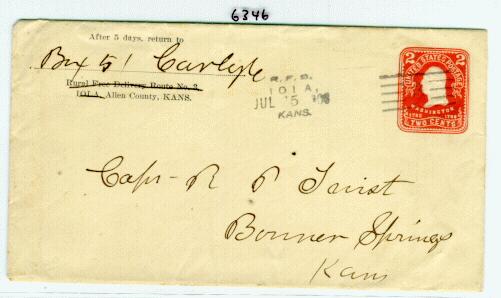 6346
After 5 days, return to
Box 51 Carlyle
Rural Free Delivery Route No. 2,
IOLA, Allen County, KANS.
R.F.D.
IOLA,
JUL 15
KANS.
2 UNITED STATES POSTAGE 2
WASHINGTON
1732 1799
TWO CENTS
Capt R P
Bonner Springs
Kans